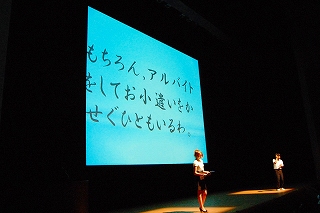 もちろん、アルバイト
をしてお小遣いをか
せぐひともいるわ。